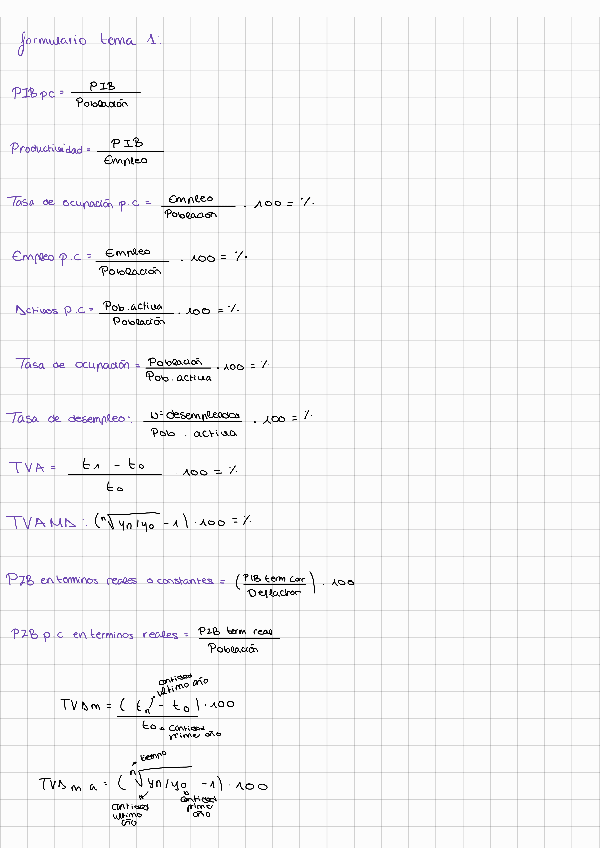 formulario tema 1:
PIB pc = PIB / Población
Productividad = PIB / Empleo
Tasa de ocupación p.c = Empleo / Población . 100 = %
Empleo p.c = Empleo / Población . 100 = %
Activos p.c = Pob. activa / Población . 100 = %
Tasa de ocupación = Población / Pob. activa . 100 = %
Tasa de desempleo: U= desempleados / Pob. activa . 100 = %
TVA = t1 - t0 / t0 100 = %
TVAMA: (ⁿ√yn/y0 - 1) . 100 = %
PIB en terminos reales o constantes = (PIB term cor / Deflactor) . 100
PIB p.c en terminos reales = PIB term real / Población
cantidad
ultimo año
TVAm = (tn - t0) . 100 / t0
cantidad
prime año
tiempo
TVAm a = (ⁿ√yn/y0 - 1) . 100
cantidad ultimo año
cantidad prime año